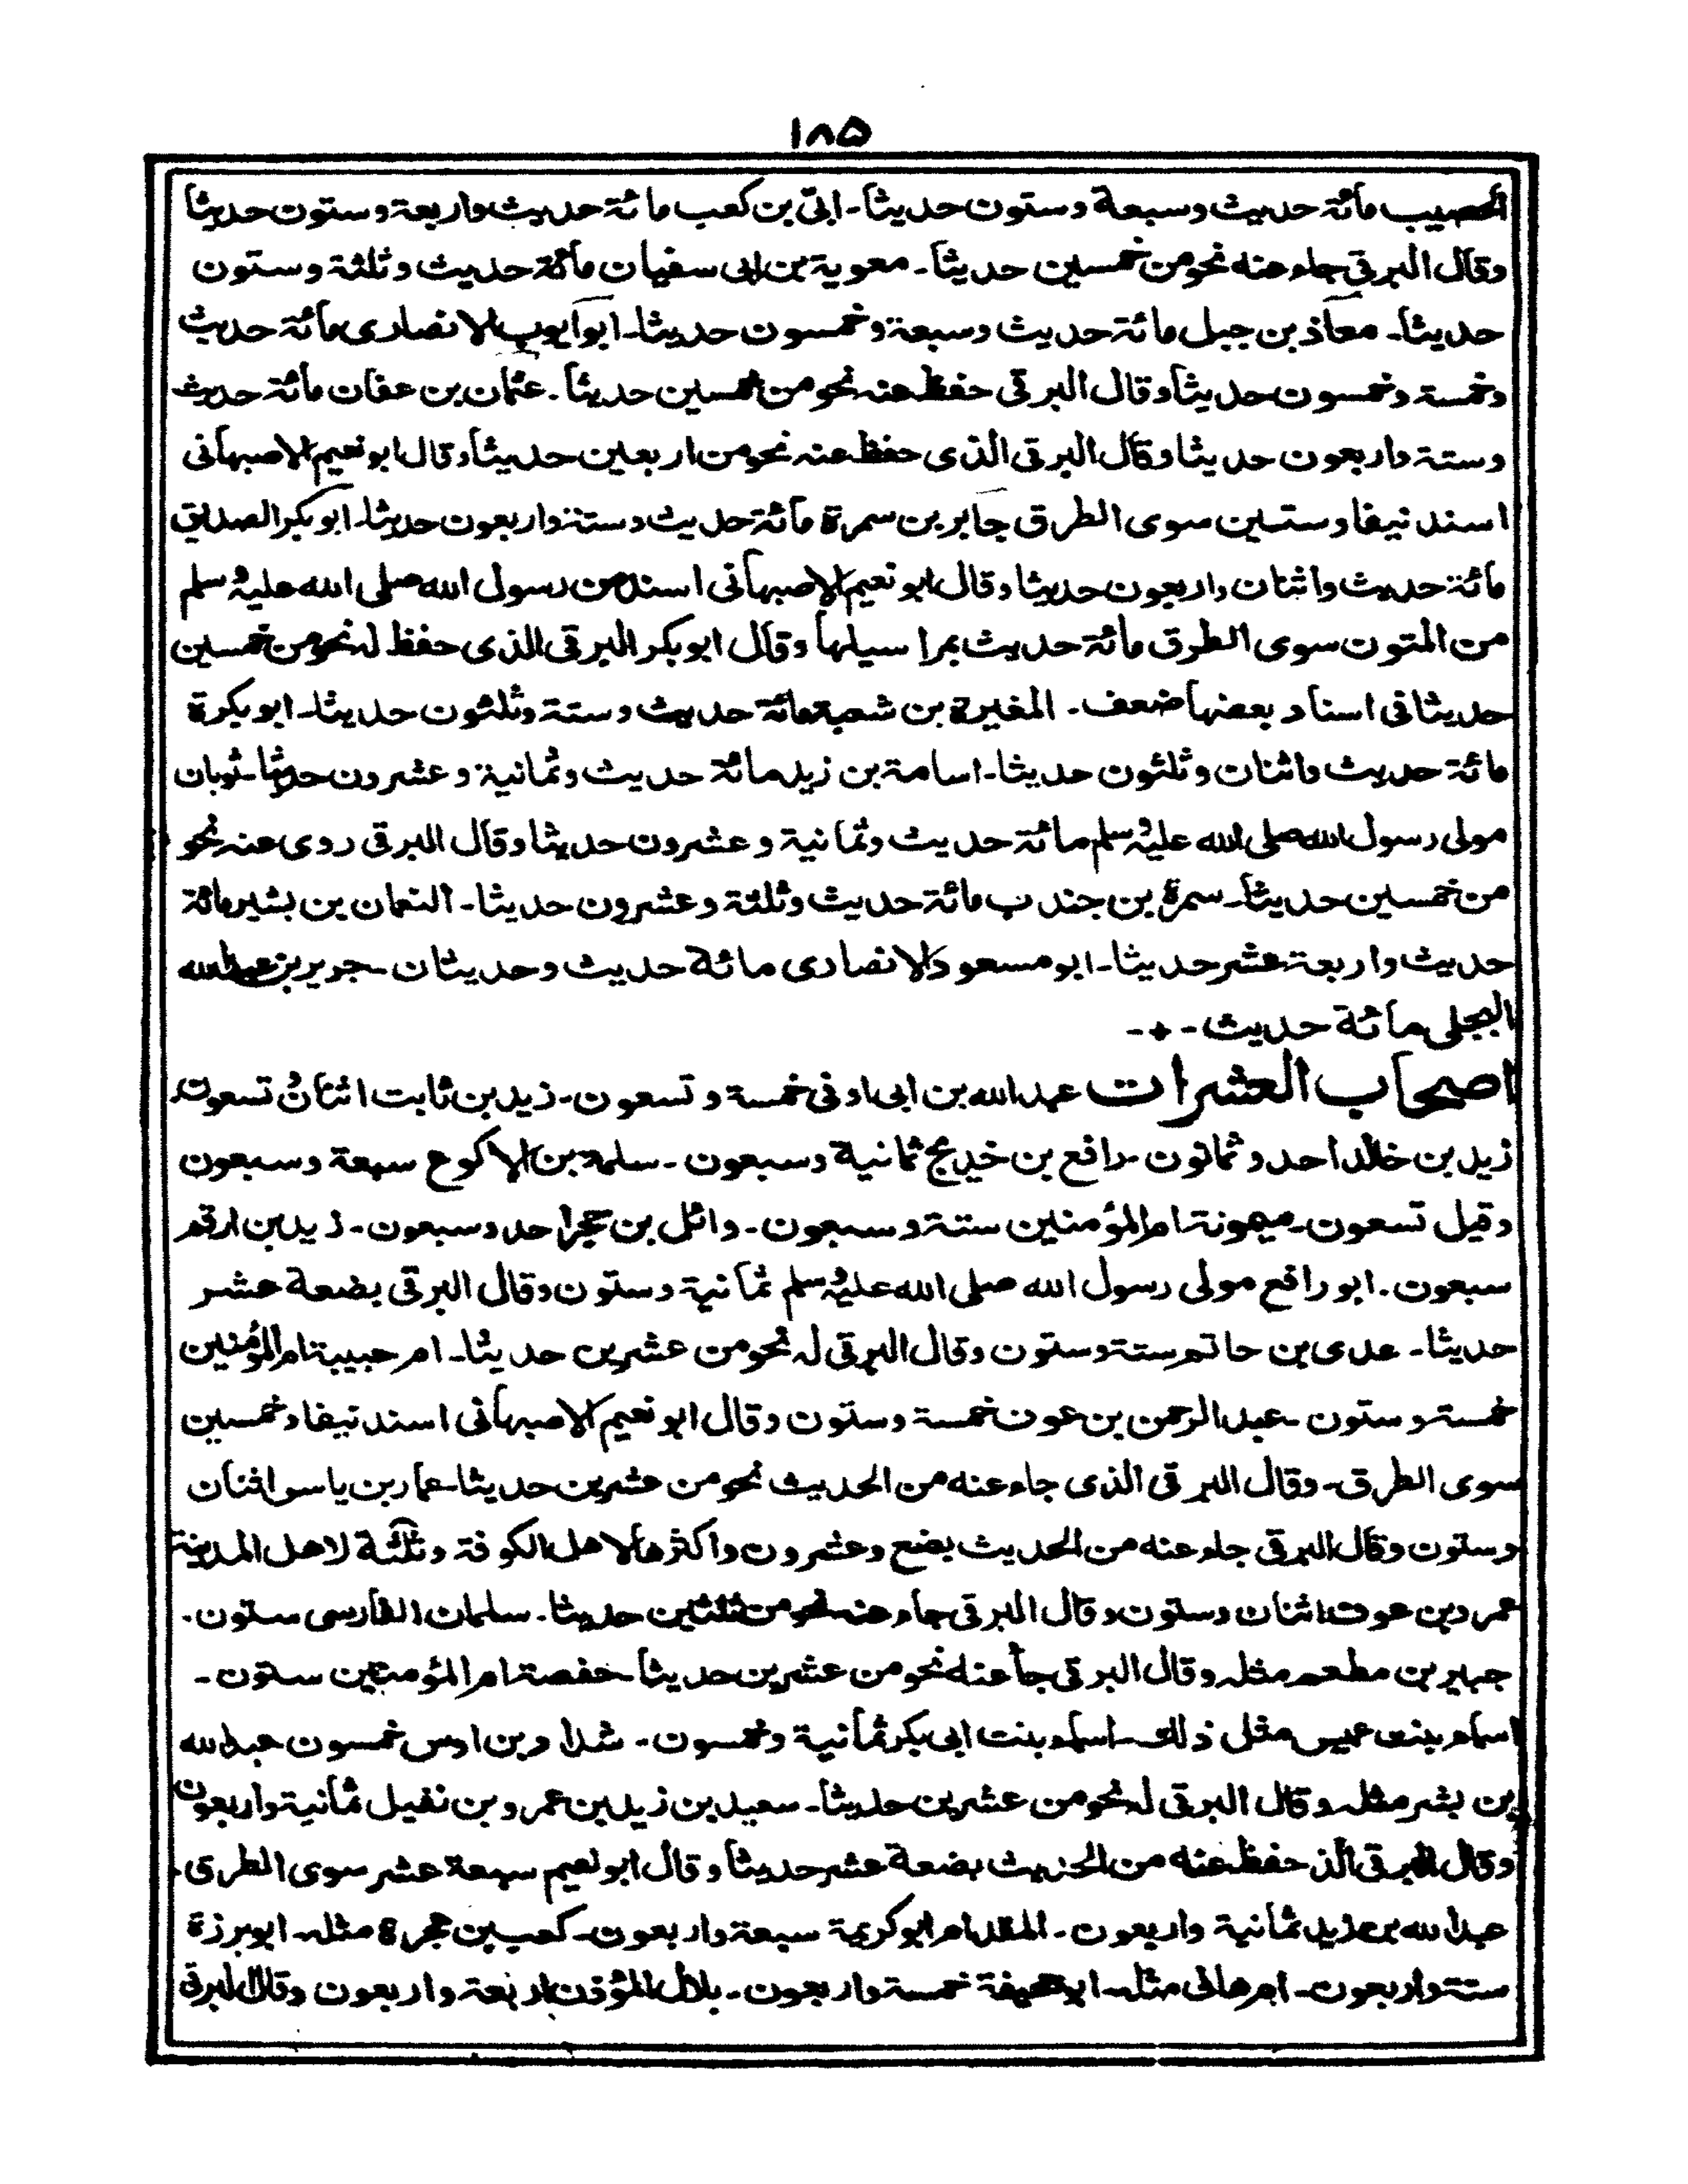 ١٨٥
الحصيب مائة حديث وسبعة وستون حديثا۔ ابي بن كعب مائة حديث واربعة وستون حديثا
وقال البرقي جاء عنه نحو من خمسين حديثا۔ معوية بن ابي سفيان مائة حديث وثلثة وستون
حديثا۔ معاذ بن جبل مائة حديث وسبعة وخمسون حديثا۔ ابو ايوب الانصارى مائة حديث
وخمسة وخمسون حديثا وقال البرقي حفظ عنه نحو من خمسين حديثا۔ عثمان بن عفان مائة حديث
وستة واربعون حديثا وقال البرقي الذى حفظ عنه نحو من اربعين حديثا وقال ابو نعيم الاصبهاني
اسند نيفا وستين سوى الطرق جابر بن سمرة مائة حديث وستة واربعون حديثا۔ ابو بكر الصديق
مائة حديث واثنان واربعون حديثا وقال ابو نعيم الاصبهاني اسند من رسول الله صلى الله عليه وسلم
من المتون سوى الطرق مائة حديث بمراسيلها وقال ابو بكر البرقي الذى حفظ له نحو من خمسين
حديثا في اسناد بعضها ضعف۔ المغيرة بن شعبة مائة حديث وستة وثلثون حديثا۔ ابو بكرة
مائة حديث واثنان وثلثون حديثا۔ اسامة بن زيد مائة حديث وثمانية وعشرون حديثا۔ ثوبان
مولى رسول الله صلى الله عليه وسلم مائة حديث وثمانية وعشرون حديثا وقال البرقي روى عنه نحو
من خمسين حديثا۔ سمرة بن جندب مائة حديث وثلثة وعشرون حديثا۔ النعمان بن بشير مائة
حديث واربعة عشر حديثا۔ ابو مسعود الانصارى مائة حديث وحديثان۔ جرير بن عبد الله
البجلي مائة حديث۔
اصحاب العشرات عبد الله بن ابي اوفى خمسة وتسعون۔ زيد بن ثابت اثنان وتسعون
زيد بن خالد احد وثمانون۔ رافع بن خديج ثمانية وسبعون۔ سلمة بن الاكوع سبعة وسبعون
وقيل تسعون۔ ميمونة ام المؤمنين ستة وسبعون۔ وائل بن حجر احد وسبعون۔ زيد بن ارقم
سبعون۔ ابو رافع مولى رسول الله صلى الله عليه وسلم ثمانية وستون وقال البرقي بضعة عشر
حديثا۔ عدى بن حاتم ستة وستون وقال البرقي له نحو من عشرين حديثا۔ ام حبيبة ام المؤمنين
خمسة وستون۔ عبد الرحمن بن عوف خمسة وستون وقال ابو نعيم الاصبهاني اسند نيفا وخمسين
سوى الطرق۔ وقال البرقي الذى جاء عنه من الحديث نحو من عشرين حديثا۔ عمار بن ياسر اثنان
وستون وقال البرقي جاء عنه من الحديث بضع وعشرون واكثرها لاهل الكوفة وثلثة لاهل المدينة
عمرو بن عوف اثنان وستون وقال البرقي جاء عنه نحو من ثلثين حديثا۔ سلمان الفارسى ستون۔
جبير بن مطعم مثله وقال البرقي جاء عنه نحو من عشرين حديثا۔ حفصة ام المؤمنين ستون۔
اسماء بنت عميس مثل ذلك۔ اسماء بنت ابي بكر ثمانية وخمسون۔ شداد بن اوس خمسون عبد الله
بن بشر مثله وقال البرقي له نحو من عشرين حديثا۔ سعيد بن زيد بن عمرو بن نفيل ثمانية واربعون
وقال البرقي الذ حفظ عنه من الحديث بضعة عشر حديثا وقال ابو نعيم سبعة عشر سوى الطرق۔
عبد الله بن يزيد ثمانية واربعون۔ المقدام ابو كريمة سبعة واربعون۔ كعب بن عجرة مثله۔ ابو برزة
ستة واربعون۔ ام هاني مثله۔ ابو جحيفة خمسة واربعون۔ بلال المؤذن اربعة واربعون وقال البرقي